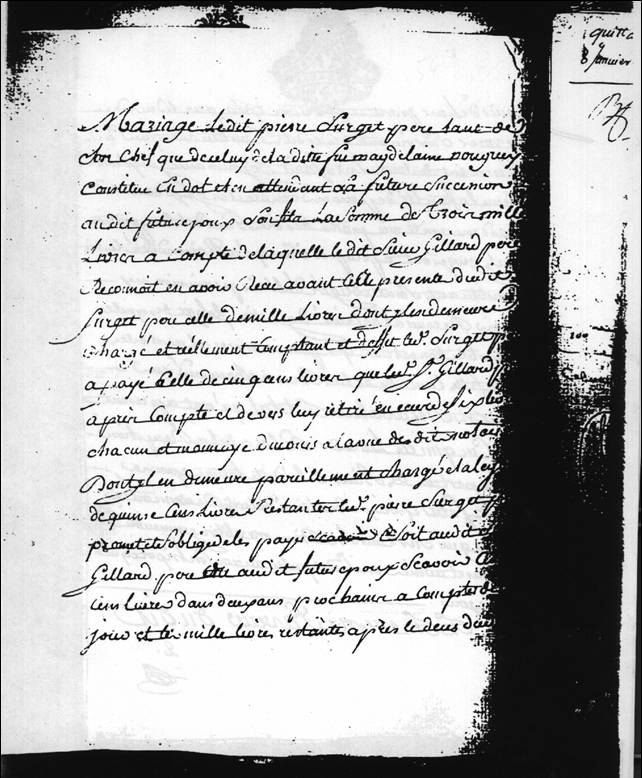 Mariage ledit pierre Surget pere tant de
son Chef que de celuy de la ditte fue magdelaine
Constitue En dot et en attendant sa future Succession
audit futur epoux Son fils La Somme de Trois mille
Livres a Compte de laquelle le dit Sieur Gillard pere
Reconnoit en avoir Receu avant Celle presente dudit
Surget pour celle de mille Livres dont il en demeure
Chargé et réellement Comptant et d'effet led. Surget
a payé Celle de cinq cens livres que led. Sr. Gillard
apris Compté et devers luy retiré en ecus de Six livres
chacun et monnoye du cours a la vue des dits notaires
Dont il en demeure pareillement chargé
de quinse Cens Livres Restantes led. pierre Surget
promet et s'oblige de les payer Soit audit
Gillard pour audit futur epoux Scavoir
Cens livres dans deux ans prochains a Compter de
jour et les mille livres restantes apres le deces
quitta
8 Janvier